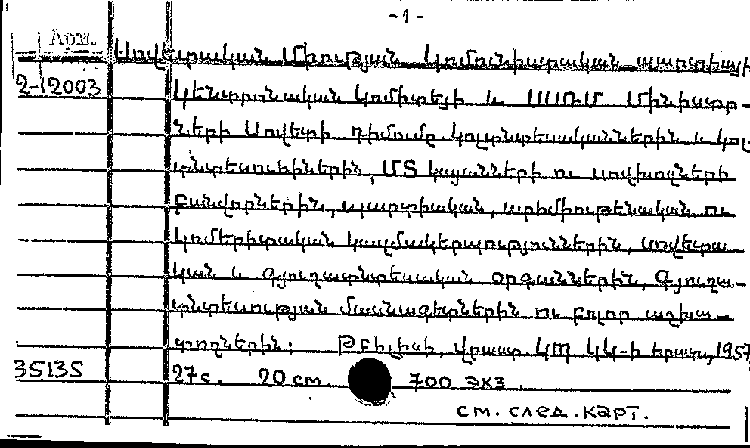 -1-
Арм. Սովետական Միության Կոմունիստական պարտիայի
2-12003 Կենտրոնական Կոմիտեյի և ՍՍՌՄ Մինիստր-
ների Սովետի դիմումը կոլտնտեսականներին և կոլ
տնտեսուհիներին, ՄՏ կայանների ու սովխոզների
բանվորներին, պարտիական, արհմիութենական ու
կոմերիտական կազմակերպություններին, սովետա
կան և գյուղատնտեսական օրգաններին, գյուղա-
տնտեսության մասնագետներին ու բոլոր աշխա-
տողներին: Թբիլիսի, Վրաստ. ԿՊ ԿԿ-ի հրատ., 1957
35135 27с. 20 cm 700 экз.
см. след. карт.